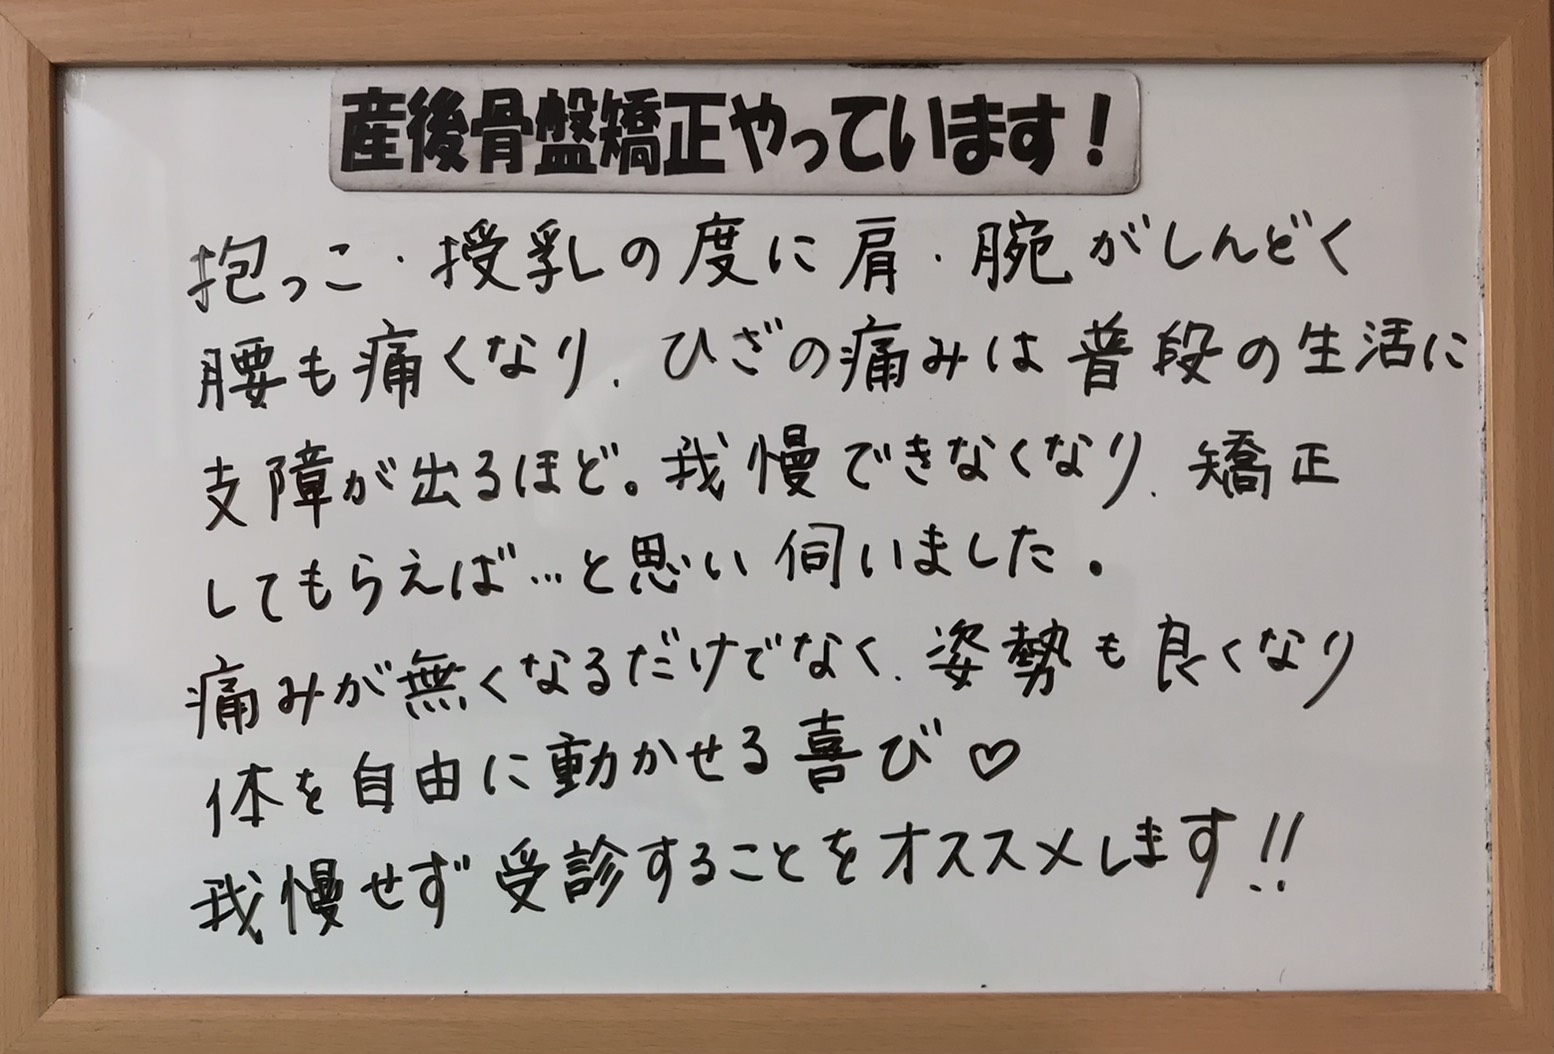 産後骨盤矯正やっています！
抱っこ・授乳の度に肩・腕がしんどく
腰も痛くなり、ひざの痛みは普段の生活に
支障が出るほど。我慢できなくなり、矯正
してもらえば…と思い伺いました。
痛みが無くなるだけでなく、姿勢も良くなり
体を自由に動かせる喜び♡
我慢せず受診することをオススメします!!